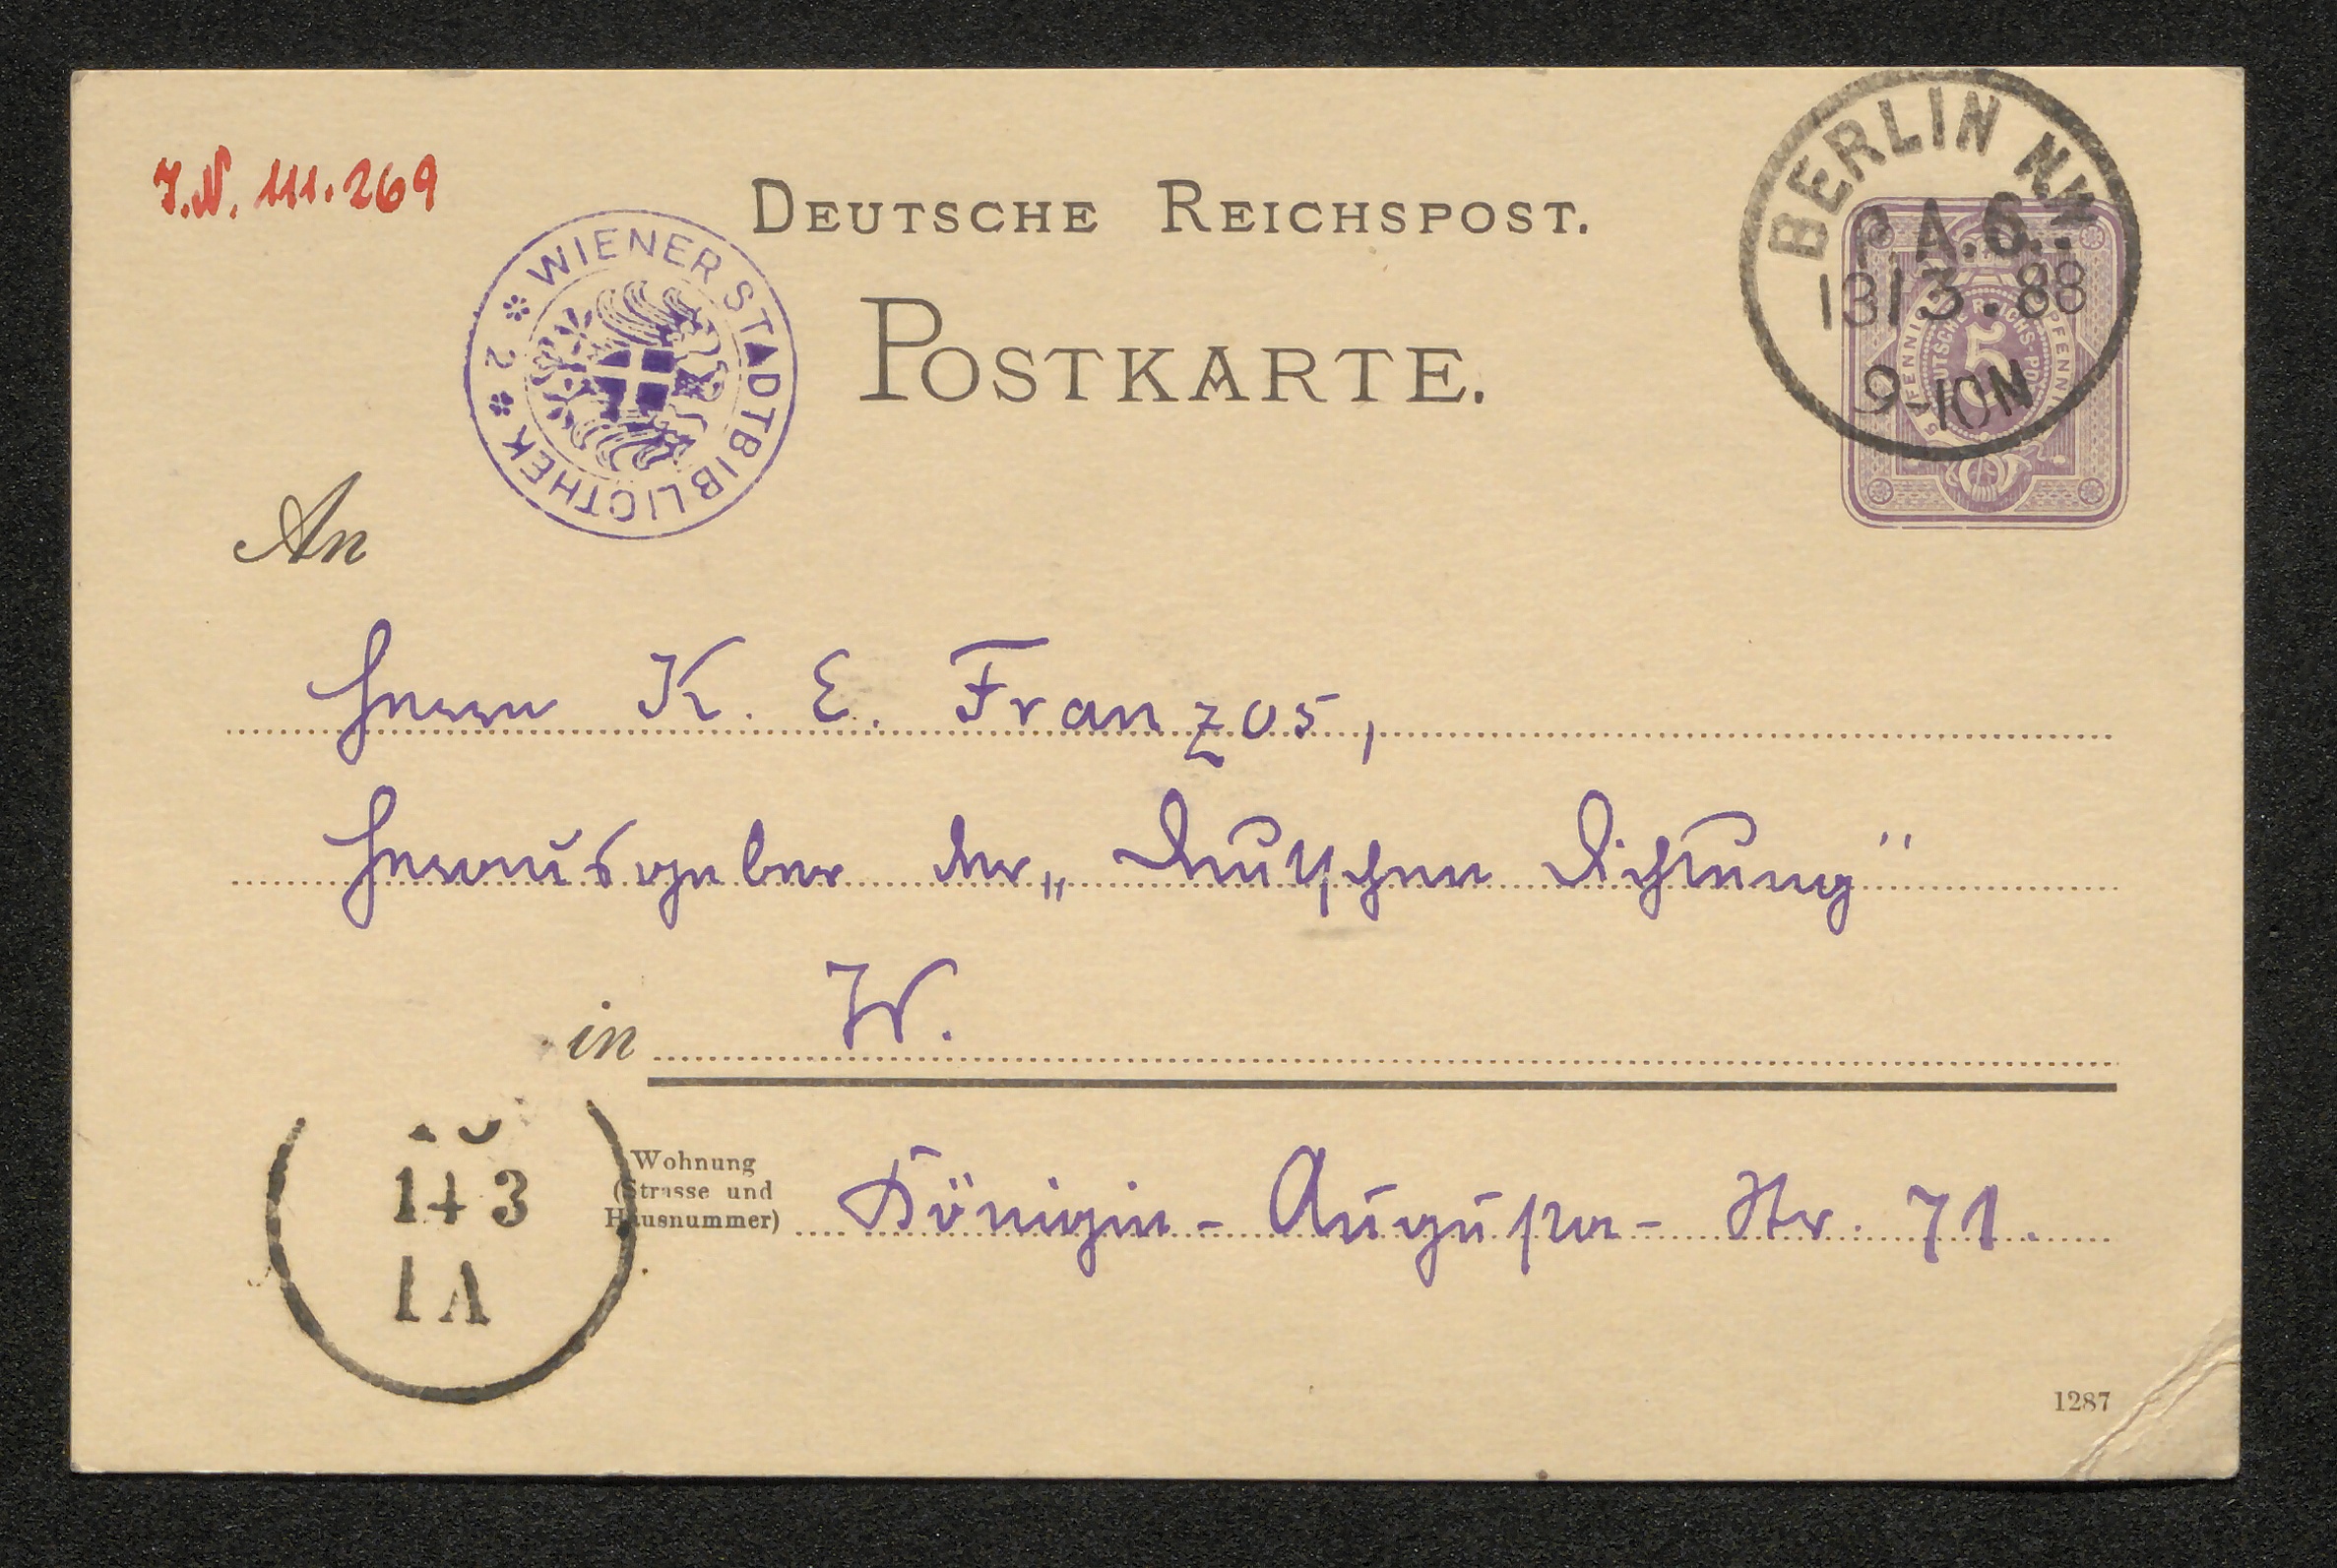 J.N. 111.269
DEUTSCHE REICHSPOST.
POSTKARTE.
WIENER STADTBIBLIOTHEK * 2 *
BERLIN N.W.
P.A.6.
13/3.88
9-10N
5 PFENNIG
DEUTSCHE REICHS-POST
5
PFENNIG
An
Herrn K. E. Franzos,
Herausgeber der „Deutschen Dichtung"
in W.
Wohnung
(Strasse und
Hausnummer)
Königin-Augusta-Str. 71.
14 3
1 A
1287